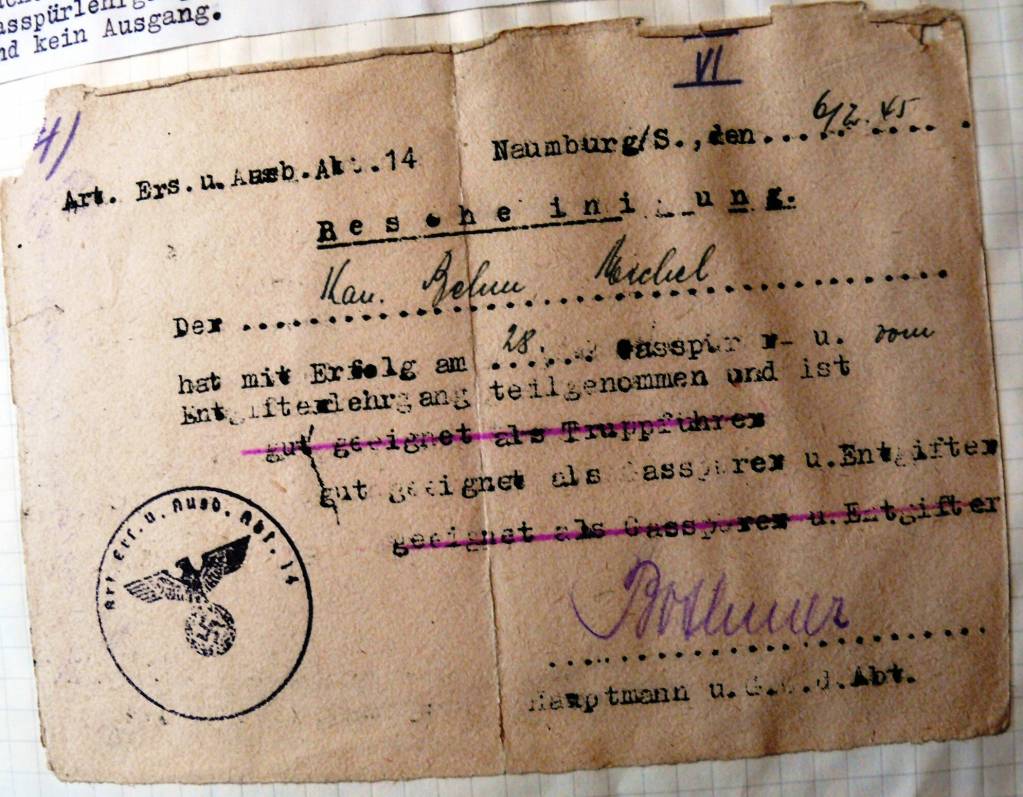 asspürlehrg
nd kein Ausgang.
VI
4)
Art. Ers. u. Ausb. Abt. 14
Naumburg/S., den 6/2. 45
Bescheinigung.
Der Kan. Behm
hat mit Erfolg am 28. Gasspürer- u. vom
Entgifterlehrgang teilgenommen und ist
gut geeignet als Truppführer
gut geeignet als Gasspürer u. Entgifter
geeignet als Gasspürer u. Entgifter
Art. Ers. u. Ausb. Abt. 14
Bothmer
Hauptmann u. d. Abt.